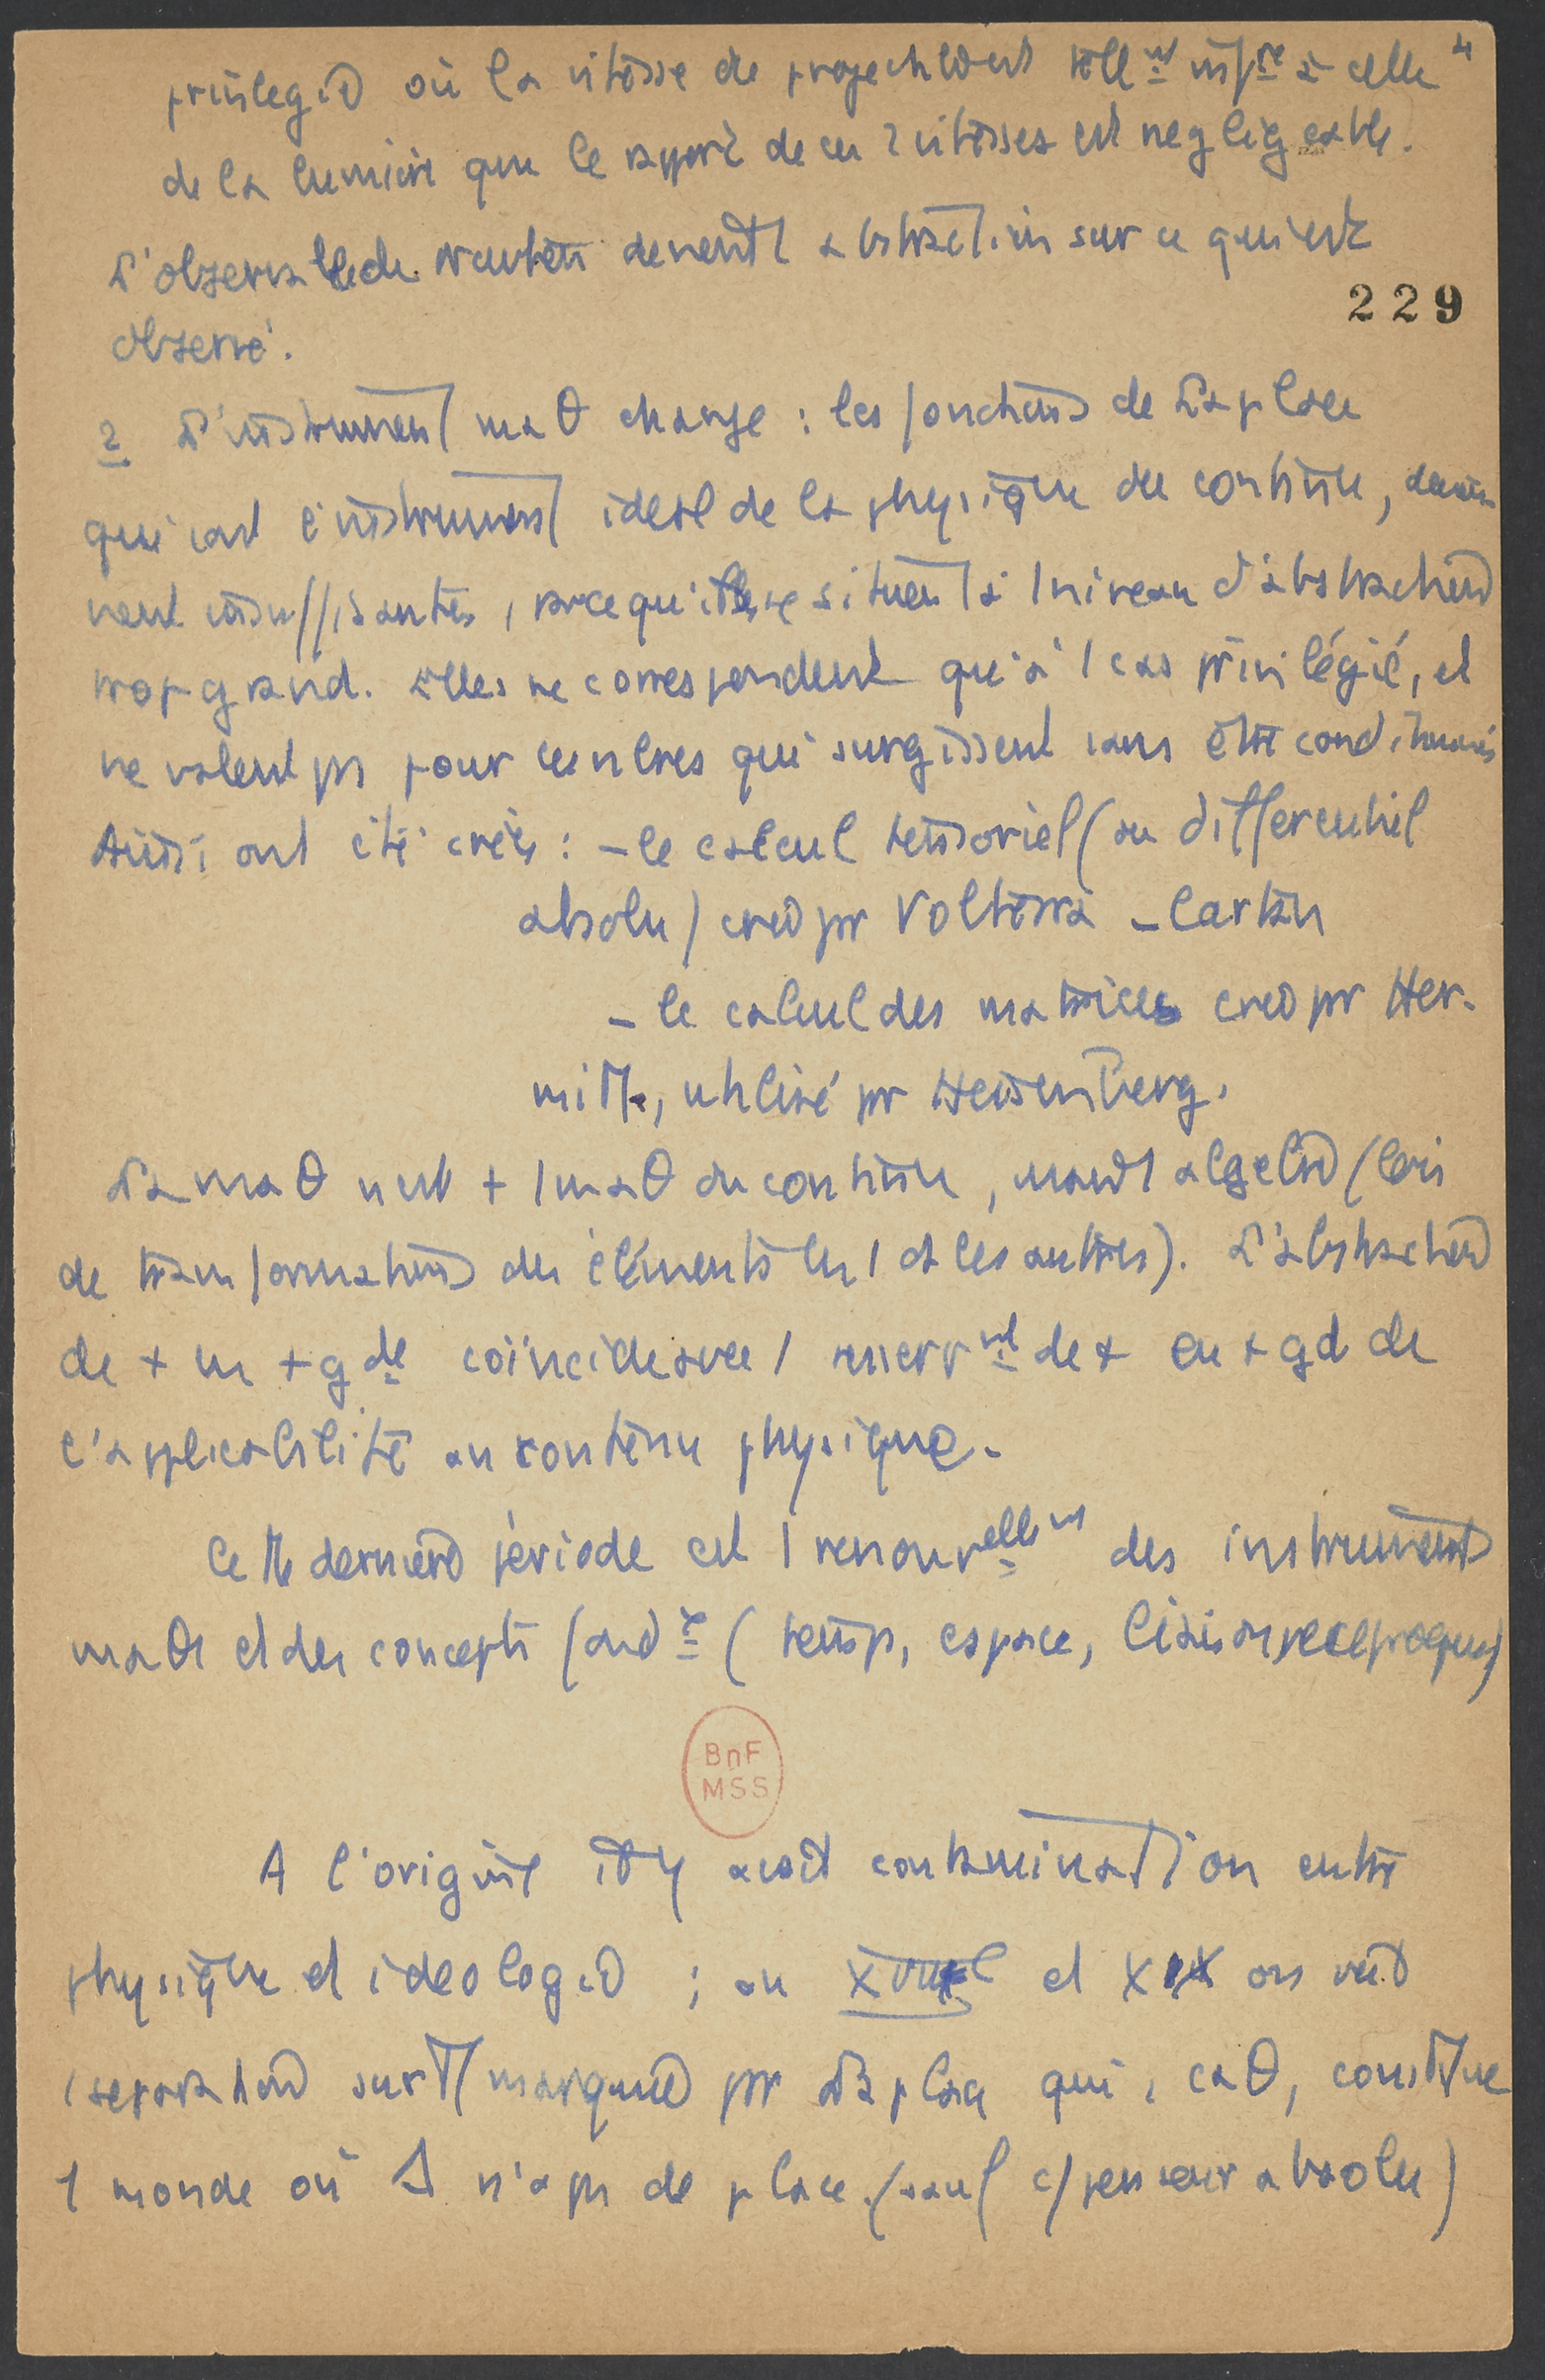 4
privilegié où la vitesse de projection est tellmt infre à celle
de la lumière que le rapport de ces 2 vitesses est negligeable.
L'observable de Newton devient 1 abstraction sur ce qui est
229
observé.
2 L'instrument maθ change : les fonctions de Laplace
qui sont l'instrument idéal de la physique du continu, devien
nent insuffisantes, parce qu'elles se situent à 1 niveau d'abstraction
trop grand. Elles ne correspondent qu'à 1 cas privilégié, et
ne valent pas pour les autres qui surgissent sans être conditionnés
Ainsi ont été créés : - le calcul tensoriel (ou differentiel
absolu) créé par Volterra - Cartan
- le calcul des matrices créé par Her-
mitte, utilisé par Heisenberg.
La maθ n'est + 1 maθ du continu, mais 1 algèbre (lois
de transformations des éléments les 1 ds les autres). L'abstraction
de + en + gde coïncide avec 1 de + en + gd de
l'applicabilité au contenu physique.
Cette dernière période est 1 renouvellemt des instruments
maθ et des concepts fondx (temps, espace, liaisons reciproques)
BnF
MSS
A l'origine il y avait contamination entre
physique et ideologie ; au XVIII et XIX on voit
1 separation surtt marquée par Laplace qui, caθ, constitue
1 monde où D n'a pas de place (sauf c/ penseur absolu)